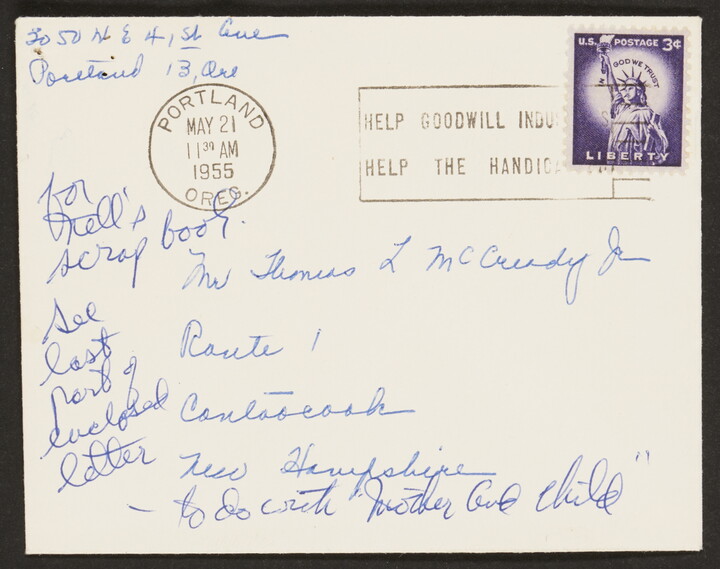 3050 N E 41, st Ave
Portland 13, Ore
PORTLAND
MAY 21
11 30 AM
1955
OREG.
HELP GOODWILL INDUS
HELP THE HANDICA
U.S. POSTAGE 3¢
IN GOD WE TRUST
LIBERTY
for
Nell's
scrap book.
see
last
part of
enclosed
letter
Mr Thomas L McCready Jr
Route 1
Contoocook
New Hampshire
— to do with "Mother and Child"